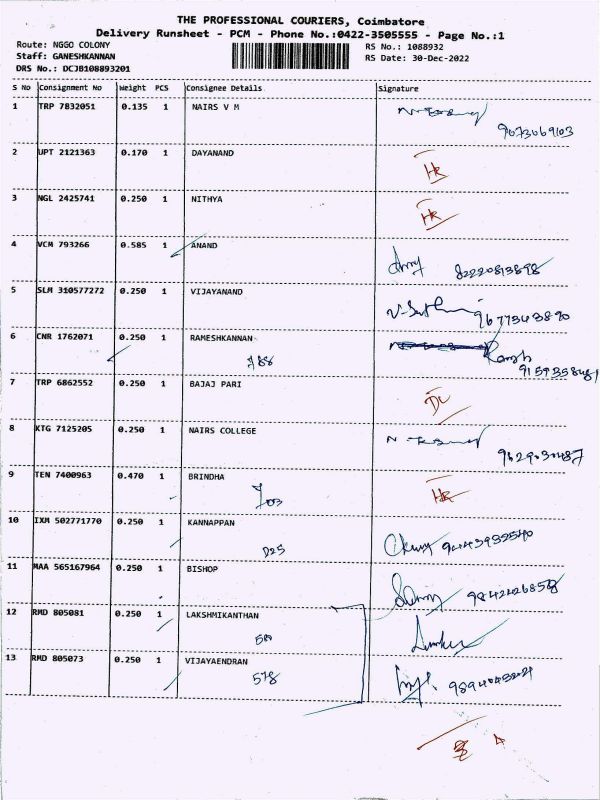 THE PROFESSIONAL COURIERS, Coimbatore
Delivery Runsheet - PCM - Phone No.:0422-3505555 - Page No.:1
Route: NGGO COLONY RS No.: 1088932
Staff: GANESHKANNAN RS Date: 30-Dec-2022
DRS No.: DCJB108893201
S No Consignment No Weight PCS Consignee Details Signature
1 TRP 7832051 0.135 1 NAIRS V M
9073069103
2 UPT 2121363 0.170 1 DAYANAND
HR
3 NGL 2425741 0.250 1 NITHYA
HR
4 VCM 793266 0.585 1 ANAND
82220813898
5 SLM 310577272 0.250 1 VIJAYANAND
9677343890
6 CNR 1762071 0.250 1 RAMESHKANNAN
Ramesh
9159358481
7 TRP 6862552 0.250 1 BAJAJ PARI
DL
8 KTG 7125205 0.250 1 NAIRS COLLEGE
9629030487
9 TEN 7400963 0.470 1 BRINDHA
HR
10 IXM 502771770 0.250 1 KANNAPPAN
D25
11 MAA 565167964 0.250 1 BISHOP
12 RMD 805081 0.250 1 LAKSHMIKANTHAN
13 RMD 805073 0.250 1 VIJAYAENDRAN
578